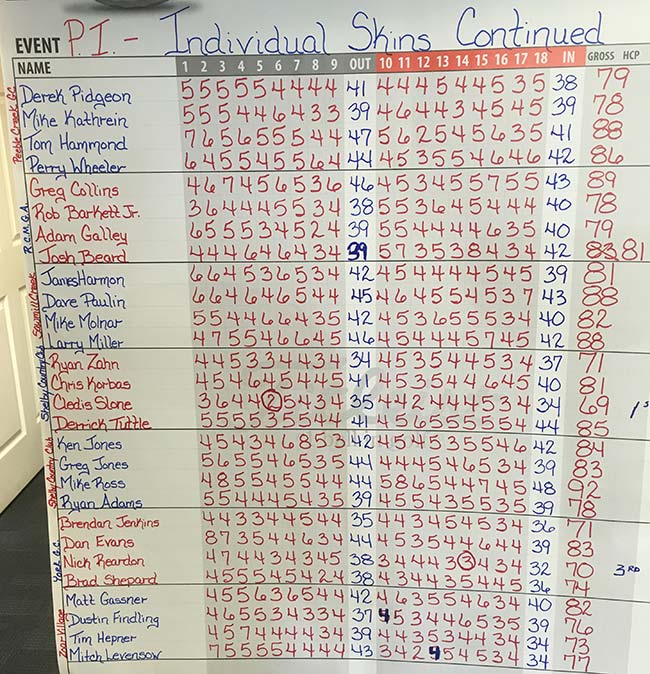 EVENT P.I. - Individual Skins Continued
NAME 1 2 3 4 5 6 7 8 9 OUT 10 11 12 13 14 15 16 17 18 IN GROSS HCP
Peeble Creek G.C.
Derek Pidgeon 5 5 5 5 5 4 4 4 4 41 4 4 4 5 4 4 5 3 5 38 79
Mike Kathrein 5 5 5 4 4 6 4 3 3 39 4 6 4 4 3 4 5 4 5 39 78
Tom Hammond 7 6 5 6 5 5 5 4 4 47 5 6 2 5 4 5 6 3 5 41 88
Perry Wheeler 6 4 5 5 4 5 5 6 4 44 4 5 3 5 5 4 6 4 6 42 86
R.C.M.G.A.
Greg Collins 4 6 7 4 5 6 5 3 6 46 4 5 3 4 5 5 7 5 5 43 89
Rob Barkett Jr. 3 6 4 4 4 5 5 3 4 38 5 5 3 6 4 5 4 4 4 40 78
Adam Galley 6 5 5 5 3 4 5 2 4 39 5 5 4 4 4 4 6 3 5 40 79
Josh Beard 4 4 4 6 4 6 4 3 4 39 5 7 3 5 3 8 4 3 4 42 83 81
Sawmill Creek
James Harmon 6 6 4 5 3 6 5 3 4 42 4 5 4 4 4 4 5 4 5 39 81
Dave Paulin 6 6 4 6 4 6 5 4 4 45 4 6 4 5 5 4 5 3 7 43 88
Mike Molnar 5 5 4 4 6 6 4 3 5 42 4 5 3 6 5 5 5 3 4 40 82
Larry Miller 4 7 5 5 4 6 6 4 5 46 4 5 4 4 4 5 7 4 5 42 88
Shelby Country Club
Ryan Zahn 4 4 5 3 3 4 4 3 4 34 4 5 3 5 4 4 5 3 4 37 71
Chris Korbas 4 5 4 6 4 5 4 4 5 41 4 5 3 5 4 4 6 4 5 40 81
Cledis Slone 3 6 4 4 2 5 4 3 4 35 4 4 2 4 4 4 5 3 4 34 69 1s
Derrick Tuttle 5 5 5 5 3 5 5 4 4 41 4 5 6 5 5 5 5 5 4 44 85
Shelby Country Club
Ken Jones 4 5 4 3 4 6 8 5 3 42 4 5 4 5 3 5 5 4 6 42 84
Greg Jones 5 6 5 5 4 6 5 3 5 44 4 4 4 5 4 6 5 3 4 39 83
Mike Ross 4 8 5 5 4 5 5 4 4 44 5 8 6 5 4 4 7 4 5 48 92
Ryan Adams 5 5 4 4 4 5 4 3 5 39 4 5 5 4 3 5 5 3 5 39 78
York G.C.
Brendan Jenkins 4 4 3 3 4 4 5 4 4 35 4 4 3 4 5 4 5 3 4 36 71
Dan Evans 8 7 3 5 4 4 6 3 4 44 4 5 3 5 4 4 6 4 4 39 83
Nick Reardon 4 7 4 4 3 4 3 4 5 38 3 4 4 4 3 3 4 3 4 32 70 3RD
Brad Shepard 4 5 5 5 4 5 4 2 4 38 4 3 4 4 3 5 4 4 5 36 74
Zoar Village
Matt Gassner 4 5 5 6 3 6 5 4 4 42 4 6 3 5 5 4 6 3 4 40 82
Dustin Findling 4 6 5 5 3 4 3 3 4 37 4 5 3 4 4 6 5 3 5 39 76
Tim Hepner 4 5 7 4 4 4 4 3 4 39 4 4 3 5 3 4 4 3 4 34 73
Mitch Levenson 7 5 5 5 5 4 4 4 4 43 3 4 2 4 5 4 5 3 4 34 77